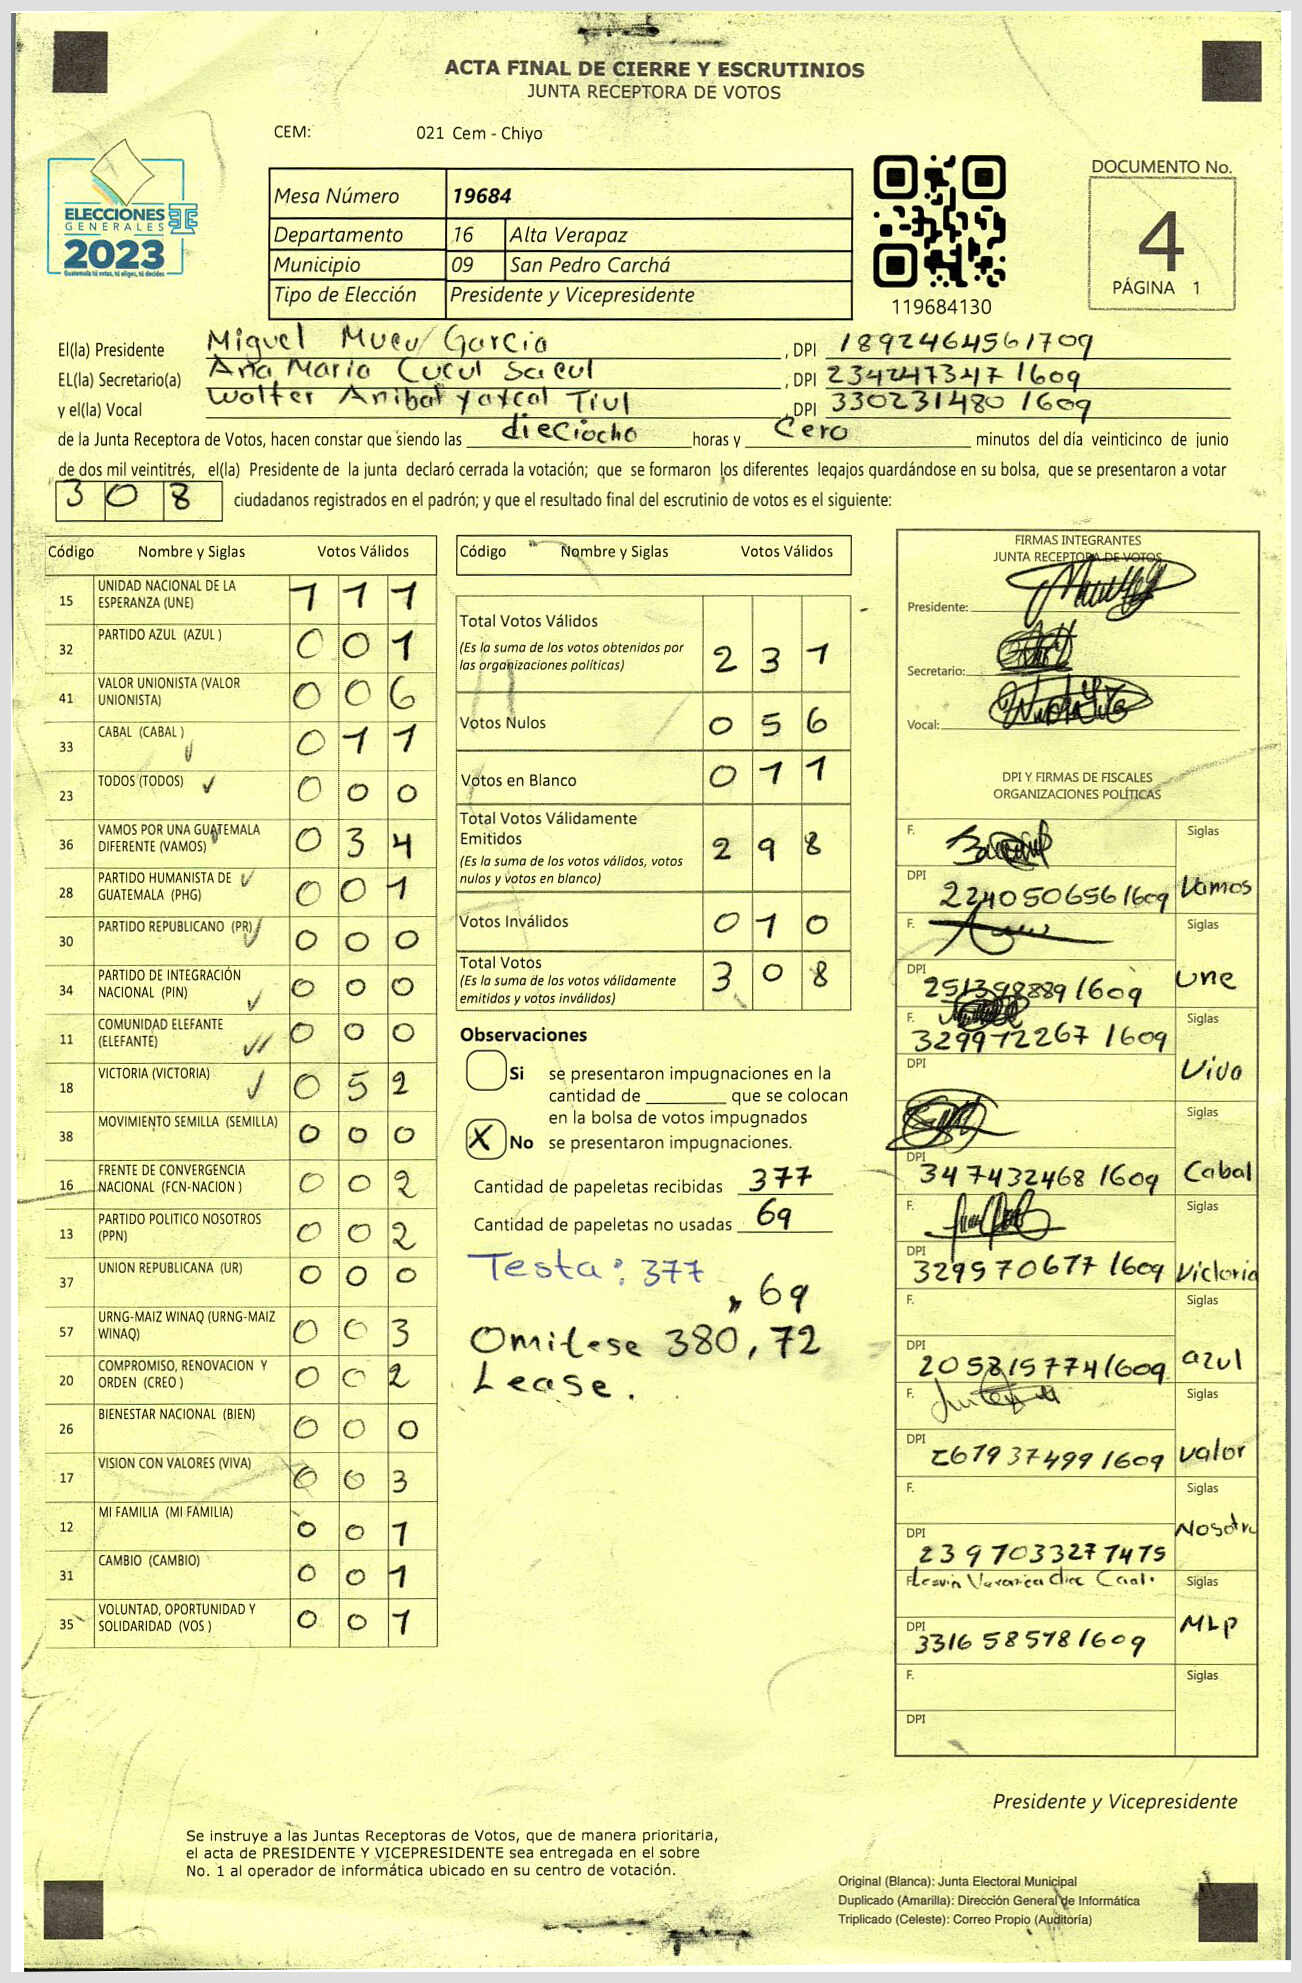 ACTA FINAL DE CIERRE Y ESCRUTINIOS
JUNTA RECEPTORA DE VOTOS
CEM: 021 Cem - Chiyo
ELECCIONES
GENERALES
2023
Guatemala tú votas, tú eliges, tú decides
Mesa Número 19684
Departamento 16 Alta Verapaz
Municipio 09 San Pedro Carchá
Tipo de Elección Presidente y Vicepresidente
119684130
DOCUMENTO No.
4
PÁGINA 1
El(la) Presidente Miguel Mucu Garcia , DPI 1892464561709
EL(la) Secretario(a) Ana Maria Cucul Sacul , DPI 234247347 1609
y el(la) Vocal Walter Anibal yaxcal Tiul , DPI 330231480 1609
de la Junta Receptora de Votos, hacen constar que siendo las dieciocho horas y Cero minutos del día veinticinco de junio
de dos mil veintitrés, el(la) Presidente de la junta declaró cerrada la votación; que se formaron los diferentes legajos guardándose en su bolsa, que se presentaron a votar
308 ciudadanos registrados en el padrón; y que el resultado final del escrutinio de votos es el siguiente:
Código Nombre y Siglas Votos Válidos
15 UNIDAD NACIONAL DE LA ESPERANZA (UNE) 1 1 1
32 PARTIDO AZUL (AZUL ) 0 0 1
41 VALOR UNIONISTA (VALOR UNIONISTA) 0 0 6
33 CABAL (CABAL ) 0 1 1
23 TODOS (TODOS) 0 0 0
36 VAMOS POR UNA GUATEMALA DIFERENTE (VAMOS) 0 3 4
28 PARTIDO HUMANISTA DE GUATEMALA (PHG) 0 0 1
30 PARTIDO REPUBLICANO (PR) 0 0 0
34 PARTIDO DE INTEGRACIÓN NACIONAL (PIN) 0 0 0
11 COMUNIDAD ELEFANTE (ELEFANTE) 0 0 0
18 VICTORIA (VICTORIA) 0 5 2
38 MOVIMIENTO SEMILLA (SEMILLA) 0 0 0
16 FRENTE DE CONVERGENCIA NACIONAL (FCN-NACION ) 0 0 2
13 PARTIDO POLITICO NOSOTROS (PPN) 0 0 2
37 UNION REPUBLICANA (UR) 0 0 0
57 URNG-MAIZ WINAQ (URNG-MAIZ WINAQ) 0 0 3
20 COMPROMISO, RENOVACION Y ORDEN (CREO ) 0 0 2
26 BIENESTAR NACIONAL (BIEN) 0 0 0
17 VISION CON VALORES (VIVA) 0 0 3
12 MI FAMILIA (MI FAMILIA) 0 0 1
31 CAMBIO (CAMBIO) 0 0 1
35 VOLUNTAD, OPORTUNIDAD Y SOLIDARIDAD (VOS ) 0 0 1
Código Nombre y Siglas Votos Válidos
Total Votos Válidos 2 3 1
(Es la suma de los votos obtenidos por
las organizaciones políticas)
Votos Nulos 0 5 6
Votos en Blanco 0 1 1
Total Votos Válidamente
Emitidos 2 9 8
(Es la suma de los votos válidos, votos
nulos y votos en blanco)
Votos Inválidos 0 1 0
Total Votos 3 0 8
(Es la suma de los votos válidamente
emitidos y votos inválidos)
Observaciones
Si se presentaron impugnaciones en la
cantidad de ________ que se colocan
en la bolsa de votos impugnados
X No se presentaron impugnaciones.
Cantidad de papeletas recibidas 377
Cantidad de papeletas no usadas 69
Testa: 377
, 69
Omitese 380, 72
Lease.
FIRMAS INTEGRANTES
JUNTA RECEPTORA DE VOTOS
Presidente:
Secretario:
Vocal:
DPI Y FIRMAS DE FISCALES
ORGANIZACIONES POLÍTICAS
F. Siglas
DPI 224050656 1609 Vamos
F. Siglas
DPI 251398889 1609 une
F. Siglas
329972267 1609
DPI Viva
Siglas
DPI 347432468 1609 Cabal
F. Siglas
DPI 329570677 1609 Victoria
F. Siglas
DPI 205815774 1609 azul
F. Siglas
DPI 267937499 1609 valor
F. Siglas
DPI 2397033277475 Nosotr
F. Siglas
DPI 331658578 1609 MLP
F. Siglas
DPI
Presidente y Vicepresidente
Se instruye a las Juntas Receptoras de Votos, que de manera prioritaria,
el acta de PRESIDENTE Y VICEPRESIDENTE sea entregada en el sobre
No. 1 al operador de informática ubicado en su centro de votación.
Original (Blanca): Junta Electoral Municipal
Duplicado (Amarilla): Dirección General de Informática
Triplicado (Celeste): Correo Propio (Auditoría)